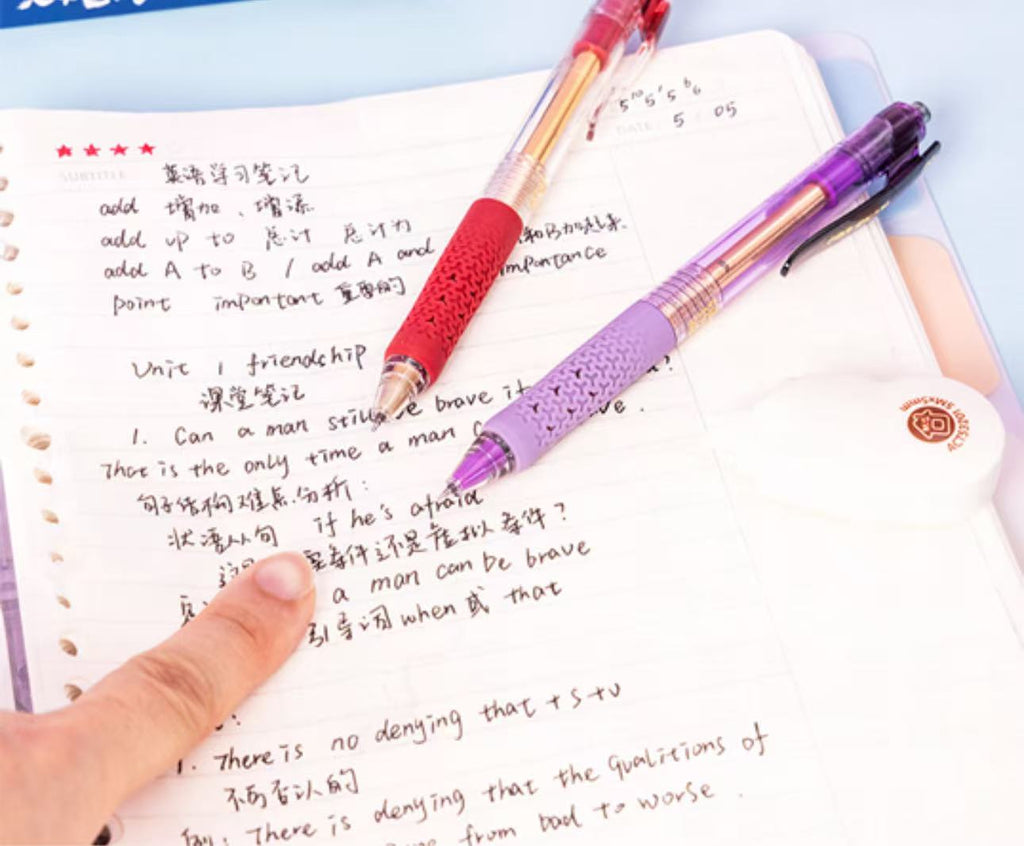 5¹⁰5′5⁶6
DATE: 5 05
SUBTITLE 英语学习笔记
add 增加、增添
add up to 总计 总计为
add A to B / add A and 和B加起来
point important 重要的 importance
Unit 1 friendship
课堂笔记
1. Can a man still be brave if ?
That is the only time a man .
句子结构难点分析:
状语从句 if he's afraid
条件还是虚拟条件?
a man can be brave
引导词 when 或 that
1. There is no denying that + s + v
不可否认的
例: There is denying that the qualitions of
from bad to worse .
ACT53001 8MX5mm